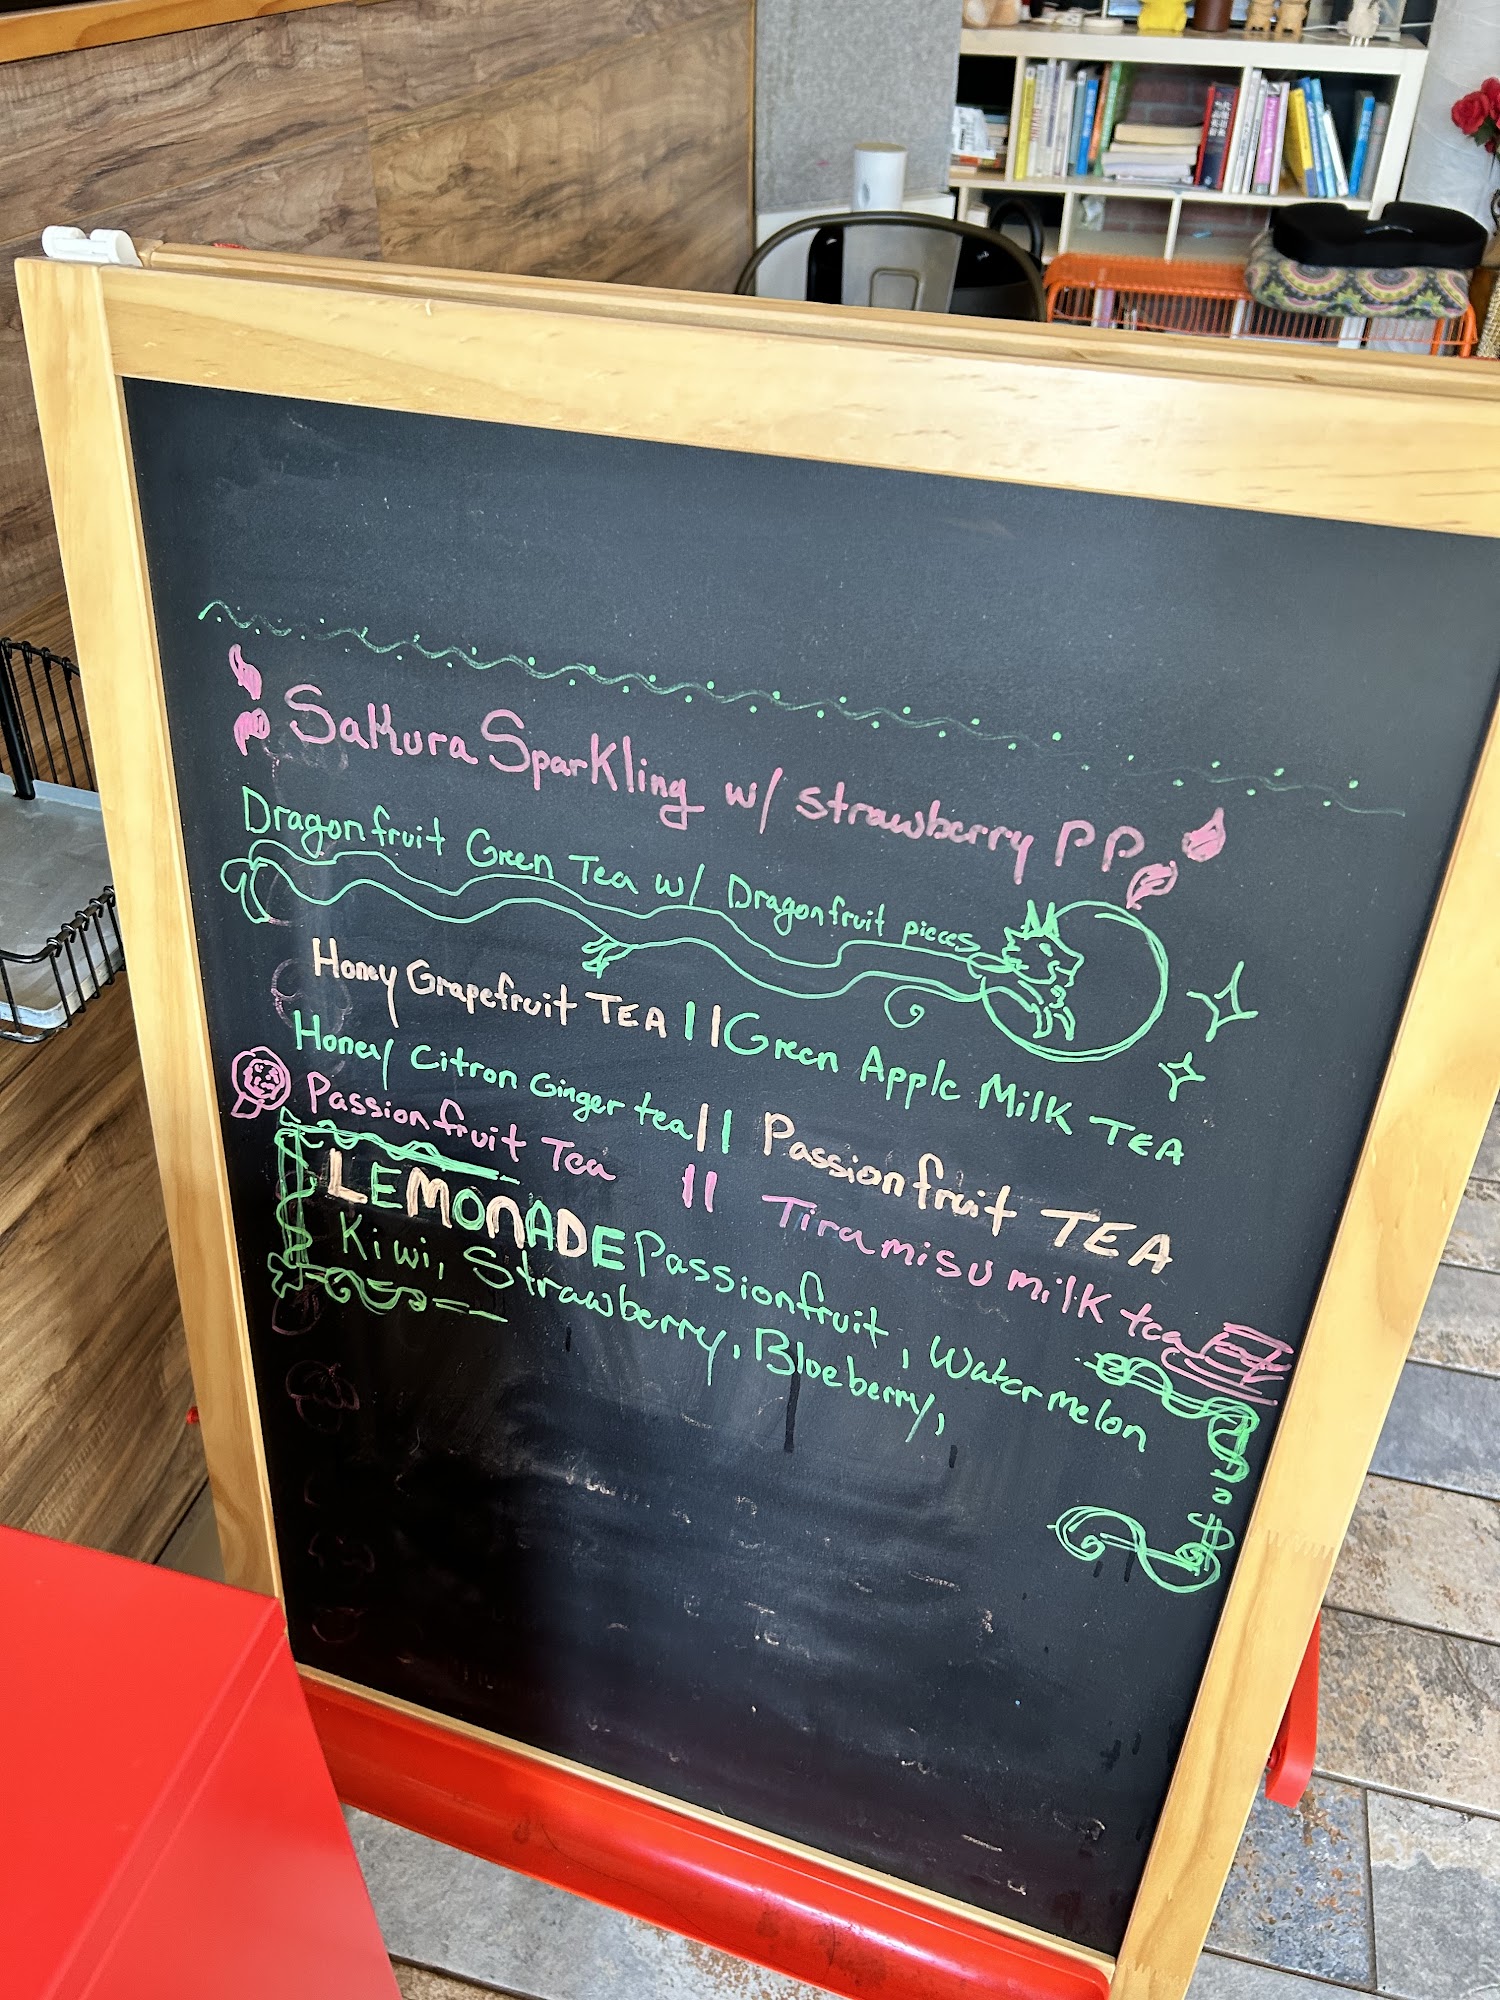 Sakura Sparkling w/ strawberry PP
Dragonfruit Green Tea w/ Dragonfruit pieces
Honey Grapefruit TEA || Green Apple Milk TEA
Honey Citron Ginger tea || Passionfruit TEA
Passionfruit Tea || Tiramisu milk tea
LEMONADE Passionfruit, Watermelon
Kiwi, Strawberry, Blueberry,